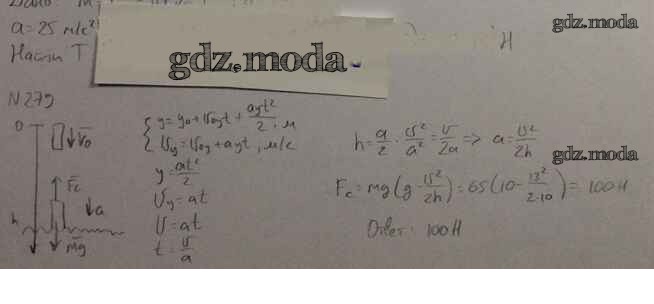 Дано:
gdz.moda
a=25 м/с²
Найти T
H
gdz.moda
N279
0
v̄₀
F̄c
a
h
m̄g
{ y=y₀+v₀yt+ayt²/2, м
vy=v₀y+ayt, м/с
y=at²/2
vy=at
v=at
t=v/a
h=a/2·v²/a²=v/2a ⇒ a=v²/2h
gdz.moda
Fc=mg(g-v²/2h)=65(10-13²/2·10)=100H
Ответ: 100H